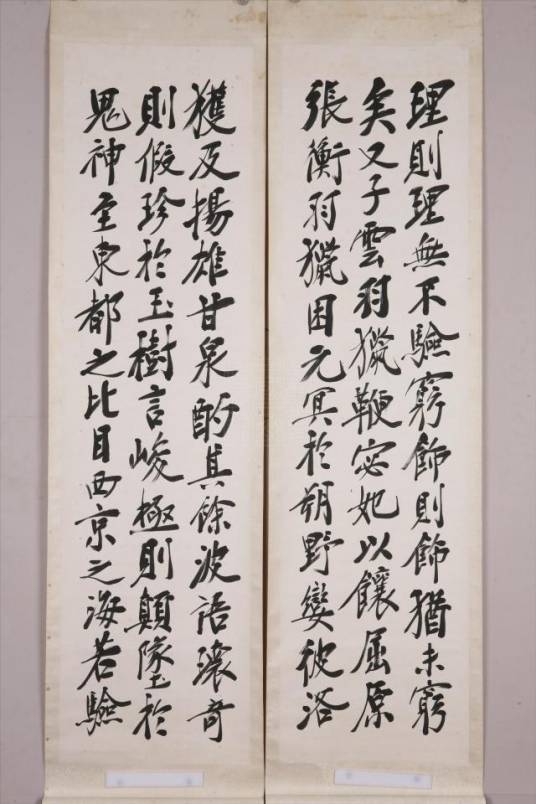 理則理無不驗窮飾則飾猶未窮
矣又子雲羽獵鞭宓妃以饟屈原
張衡羽獵困元冥於朔野孌彼洛
獲及揚雄甘泉酌其餘波語瓌奇
則假珍於玉樹言峻極則顛墜於
鬼神至東都之比目西京之海若驗